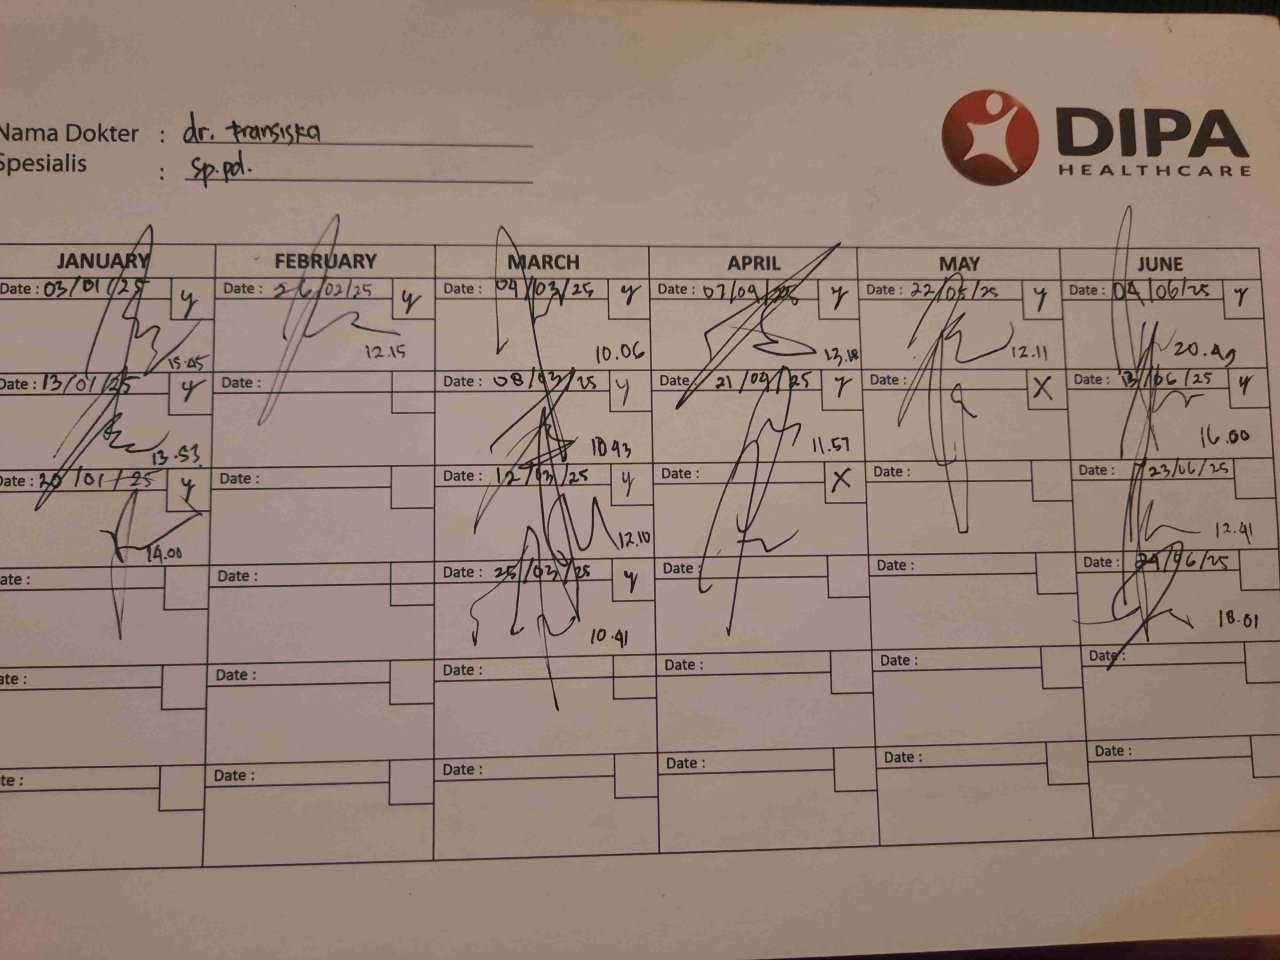 Nama Dokter : dr. fransiska
Spesialis : sp.pd.
DIPA
HEALTHCARE
JANUARY FEBRUARY MARCH APRIL MAY JUNE
Date : 03/01/25 y Date : 26/02/25 y Date : 04/03/25 y Date : 07/04/25 y Date : 22/05/25 y Date : 04/06/25 y
15.45 12.15 10.06 13.18 12.11 20.49
Date : 13/01/25 y Date : Date : 08/03/25 y Date : 21/04/25 y Date : X Date : 13/06/25 y
13.53 10.43 11.57 16.00
Date : 30/01/25 y Date : Date : 12/03/25 y Date : X Date : Date : 23/06/25
14.00 12.10 12.41
ate : Date : Date : 25/03/25 y Date : Date : Date : 24/06/25
10.41 18.01
ate : Date : Date : Date : Date : Date :
te : Date : Date : Date : Date : Date :